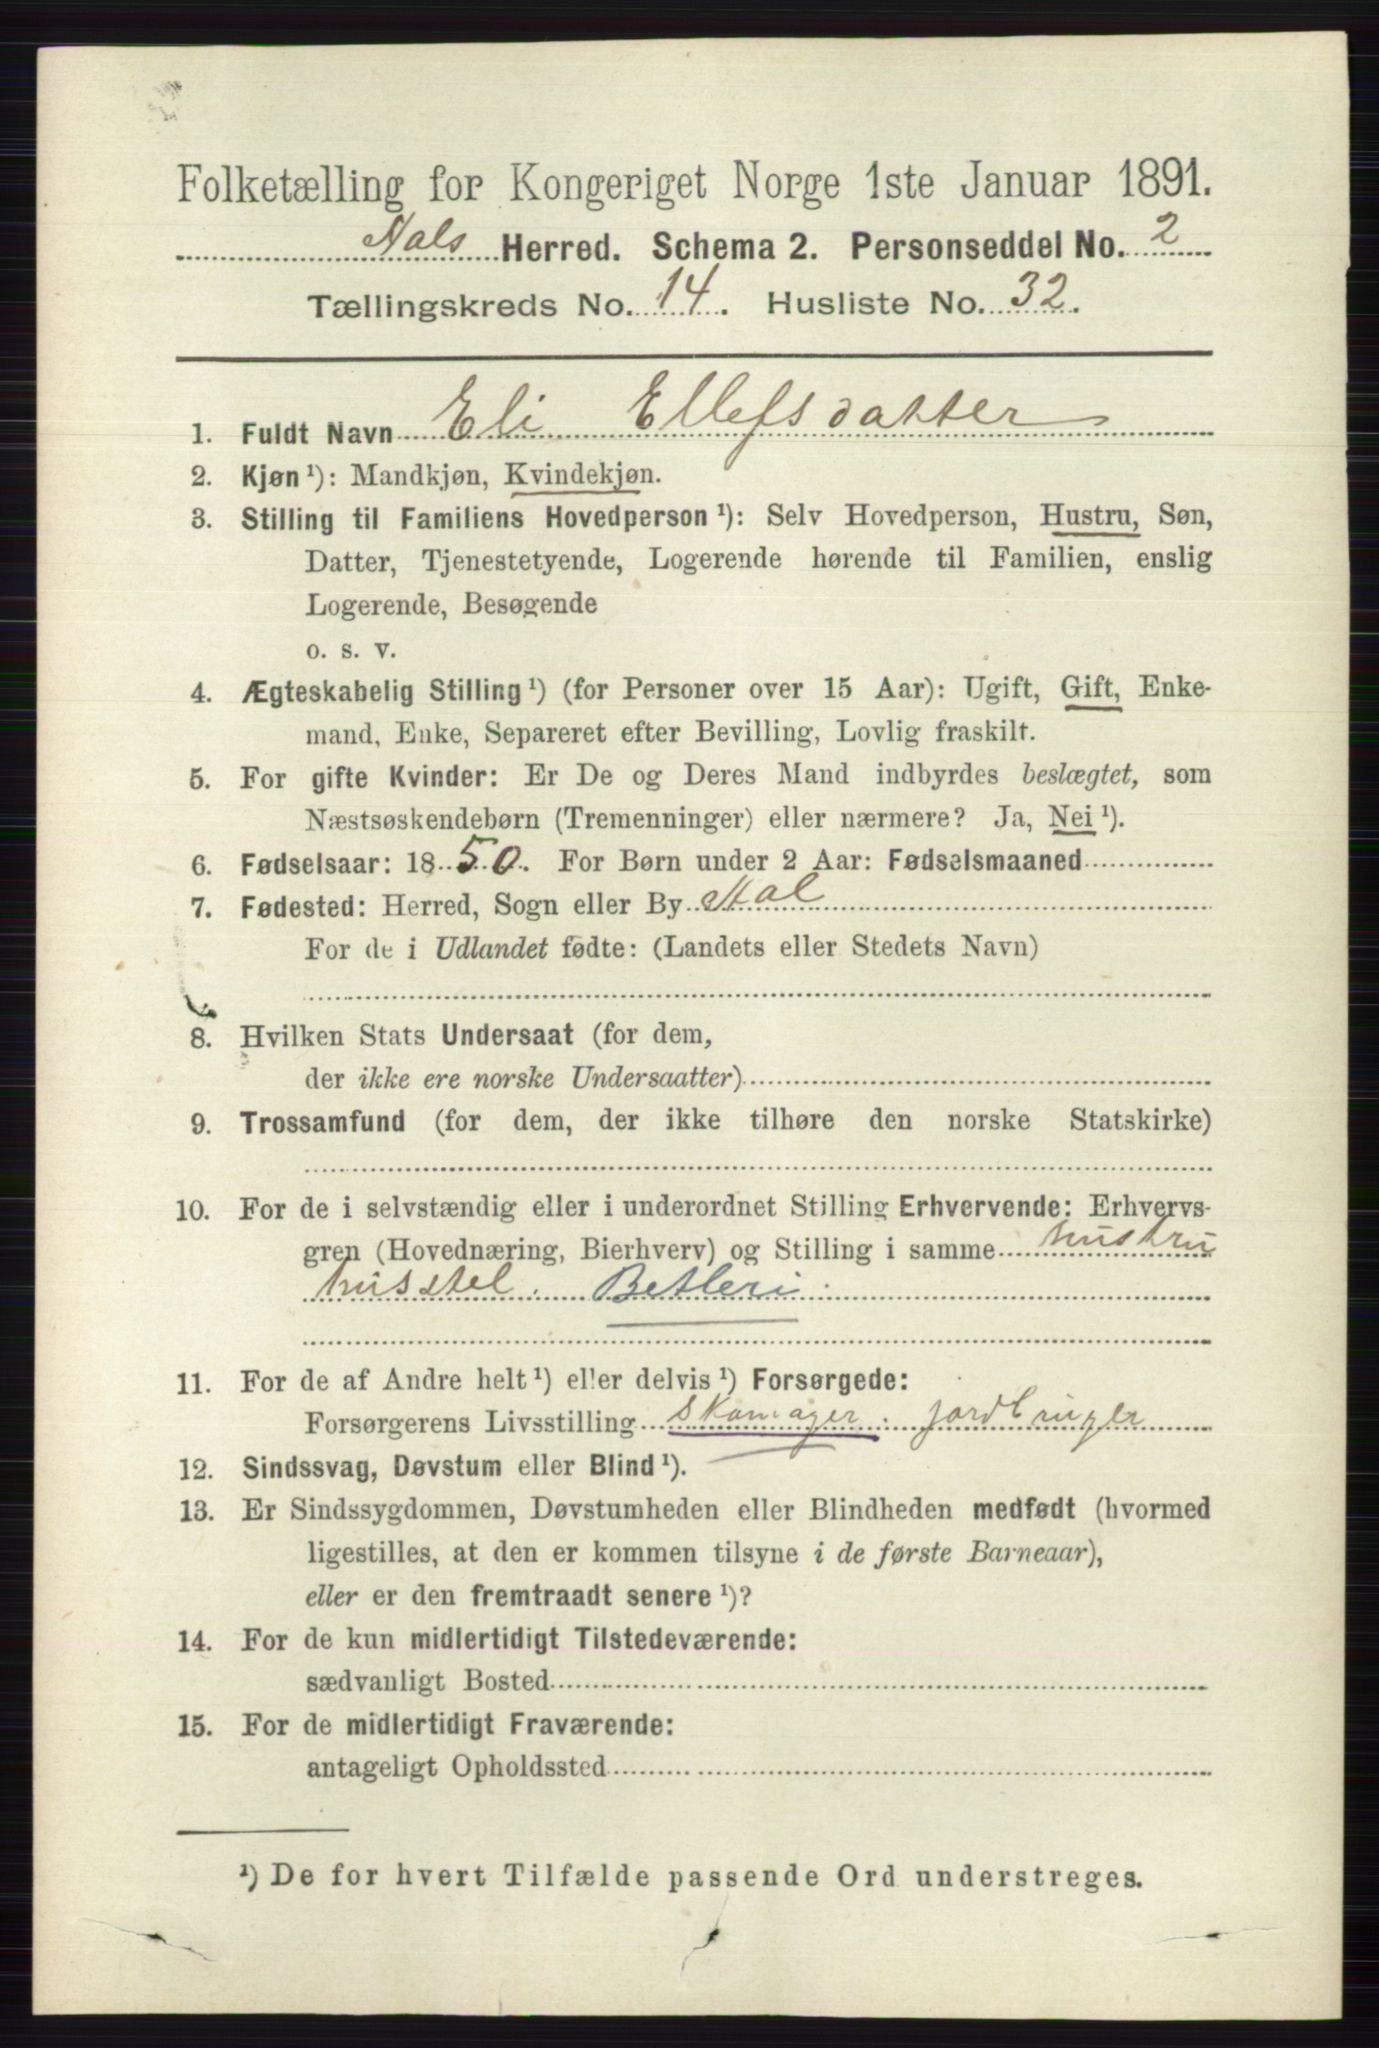 Folketælling for Kongeriget Norge 1ste Januar 1891.
Aals Herred. Schema 2. Personseddel No. 2
Tællingskreds No. 14. Husliste No. 32.
1. Fuldt Navn Eli Ellefsdatter
2. Kjøn ¹): Mandkjøn, Kvindekjøn.
3. Stilling til Familiens Hovedperson ¹): Selv Hovedperson, Hustru, Søn,
Datter, Tjenestetyende, Logerende hørende til Familien, enslig
Logerende, Besøgende
o. s. v.
4. Ægteskabelig Stilling ¹) (for Personer over 15 Aar): Ugift, Gift, Enke-
mand, Enke, Separeret efter Bevilling, Lovlig fraskilt.
5. For gifte Kvinder: Er De og Deres Mand indbyrdes beslægtet, som
Næstsøskendebørn (Tremenninger) eller nærmere? Ja, Nei ¹).
6. Fødselsaar: 1850. For Børn under 2 Aar: Fødselsmaaned
7. Fødested: Herred, Sogn eller By Aal
For de i Udlandet fødte: (Landets eller Stedets Navn)
8. Hvilken Stats Undersaat (for dem,
der ikke ere norske Undersaatter)
9. Trossamfund (for dem, der ikke tilhøre den norske Statskirke)
10. For de i selvstændig eller i underordnet Stilling Erhvervende: Erhvervs-
gren (Hovednæring, Bierhverv) og Stilling i samme hustru
husstel.
11. For de af Andre helt ¹) eller delvis ¹) Forsørgede:
Forsørgerens Livsstilling Skomager. jordbruger
12. Sindssvag, Døvstum eller Blind ¹).
13. Er Sindssygdommen, Døvstumheden eller Blindheden medfødt (hvormed
ligestilles, at den er kommen tilsyne i de første Barneaar),
eller er den fremtraadt senere ¹)?
14. For de kun midlertidigt Tilstedeværende:
sædvanligt Bosted
15. For de midlertidigt Fraværende:
antageligt Opholdssted
¹) De for hvert Tilfælde passende Ord understreges.